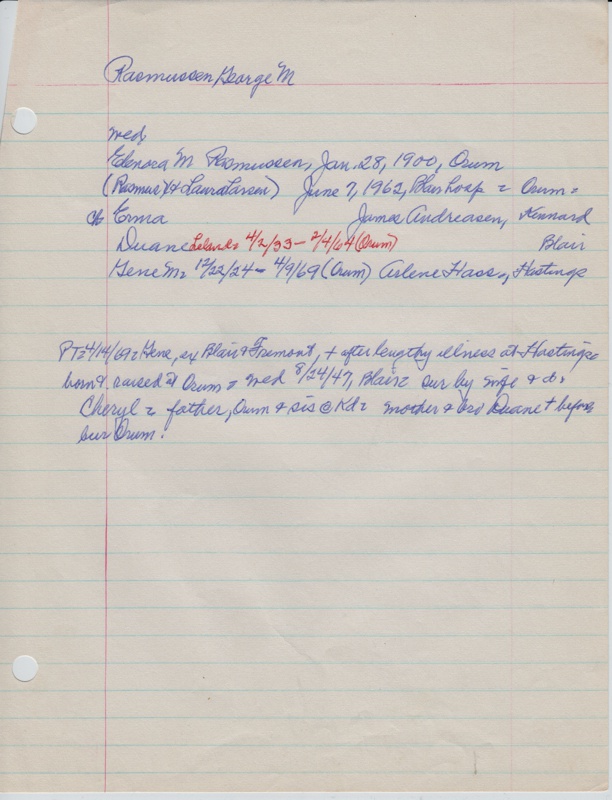 Rasmussen, George M
wed,
Elenora M Rasmussen, Jan. 28, 1900, Orum
(Rasmus H & Laura Larsen) June 7, 1962, Blair hosp = Orum =
ch Erma James Andreasen, Kennard
Duane Leland = 4/2/33 - 2/4/64 (Orum) Blair
Gene M = 12/22/24 - 4/9/69 (Orum) Arlene Hass, Hastings
PT = 4/14/69 = Gene, ex Blair & Fremont, + after lengthy illness at Hastings =
born & raised at Orum = wed 8/24/47, Blair = sur by wife & d =
Cheryl = father, Orum & sis @ Kd = mother & bro Duane + before
bur Orum.